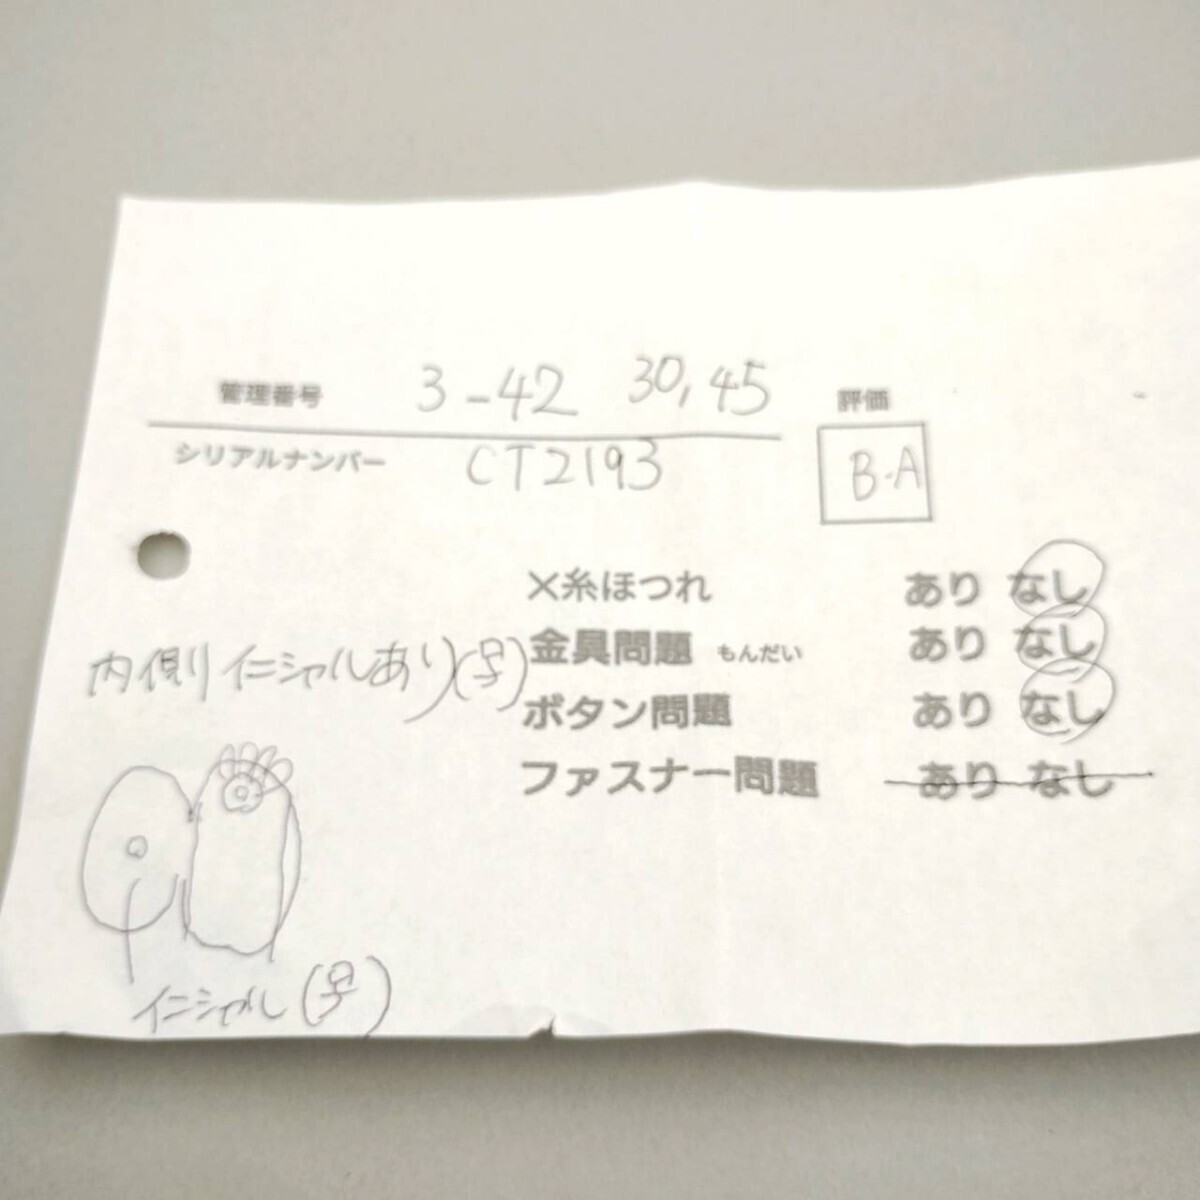 管理番号 3-42 30,45 評価
シリアルナンバー CT2193 B.A
×糸ほつれ あり なし
金具問題 もんだい あり なし
内側イニシャルあり(号)
ボタン問題 あり なし
ファスナー問題 あり なし
イニシャル(号)